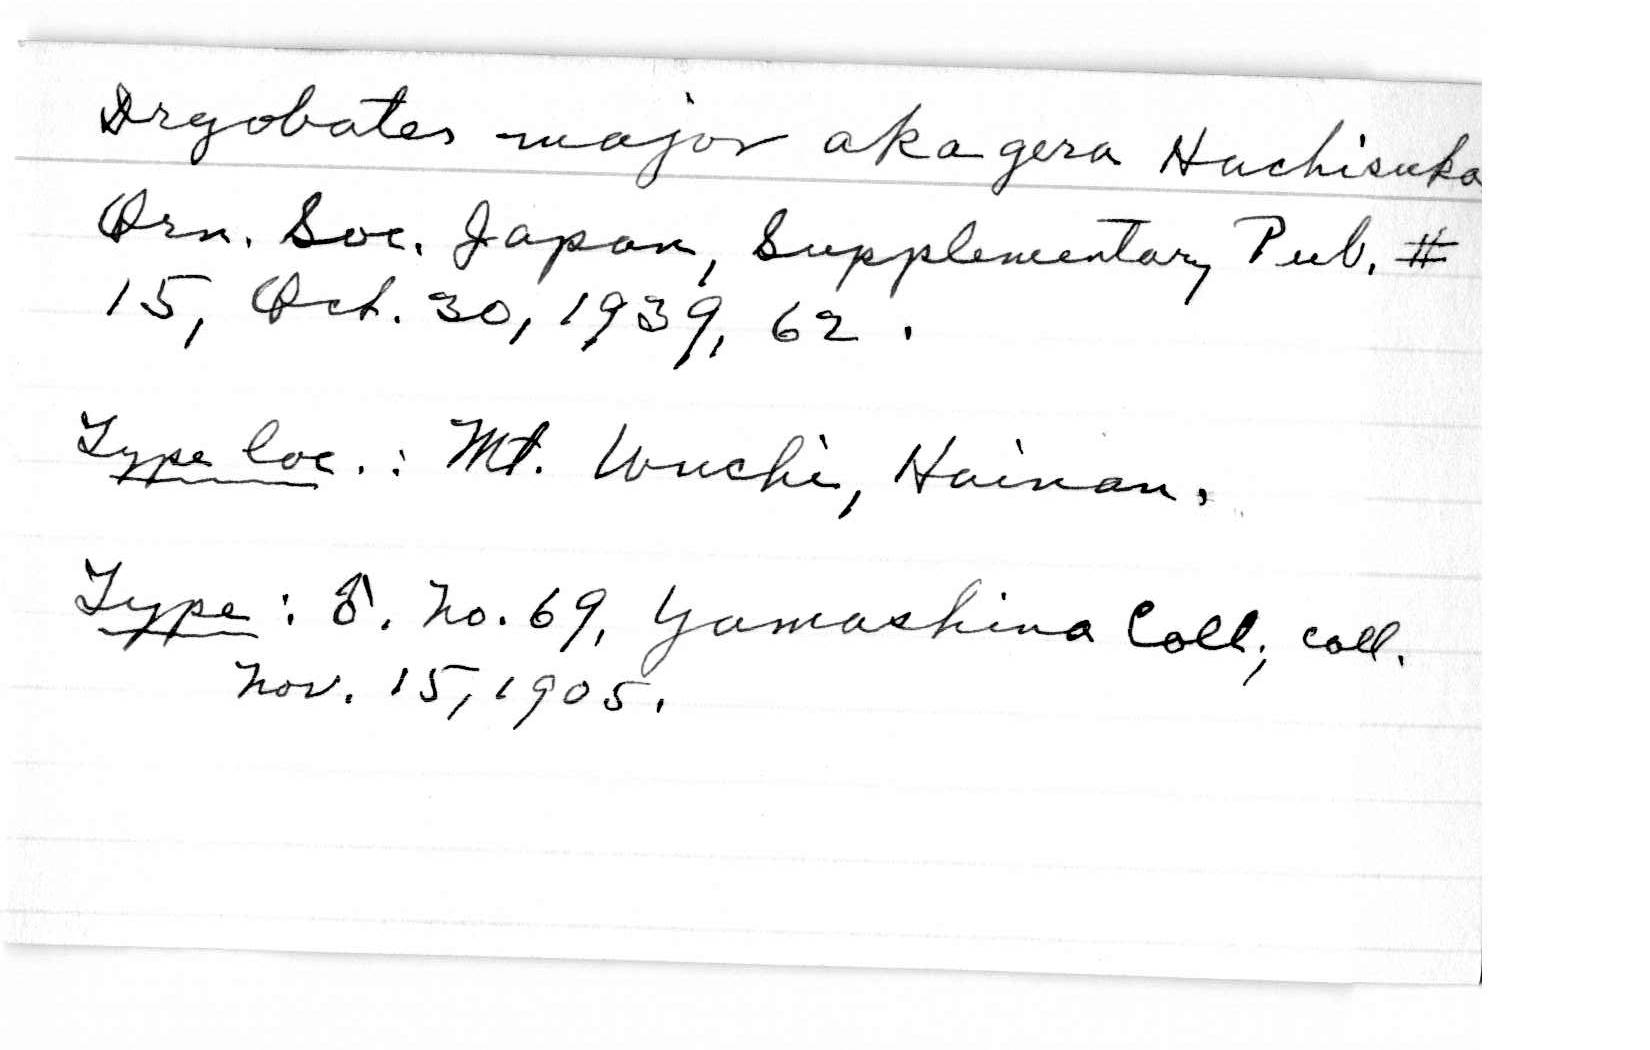 Dryobates major akagera Hachisuka
Orn. Soc. Japan, Supplementary Pub. #
15, Oct. 30, 1939, 62.
Type loc.: Mt. Wuchi, Hainan.
Type: ♂. No. 69, Yamashina Coll; coll.
Nov. 15, 1905.